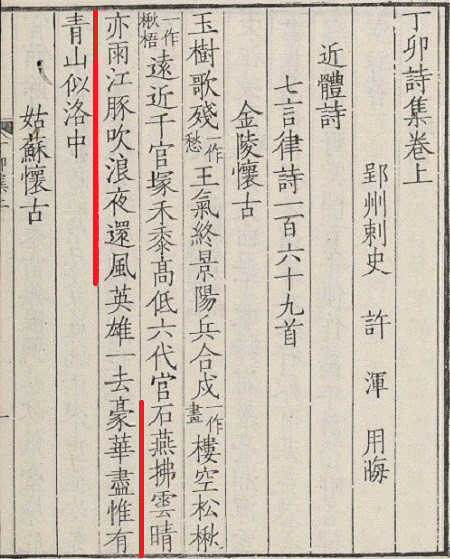 丁卯詩集卷上
郢州刺史 許渾 用晦
近體詩
七言律詩一百六十九首
金陵懷古
玉樹歌殘一作愁王氣終景陽兵合戍一作畫樓空松楸
一作楸梧遠近千官塚禾黍高低六代宮石燕拂雲晴
亦雨江豚吹浪夜還風英雄一去豪華盡惟有
青山似洛中
姑蘇懷古